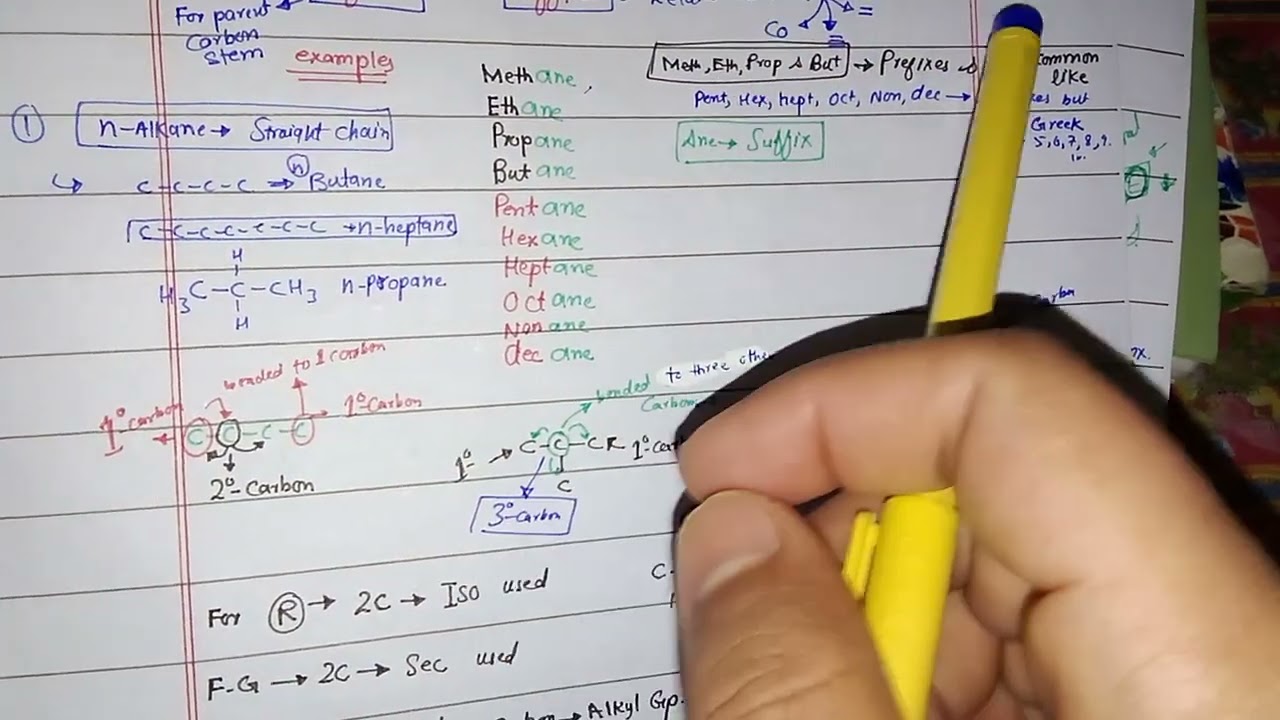 For parent
Carbon
stem
examples
① n-Alkane → Straight chain
↳ C-C-C-C ⇒ ⓝ Butane
C-C-C-C-C-C-C → n-heptane
H
H₃C-C-CH₃ n-propane
H
bonded to 1 carbon
1° Carbon
C-C-C-C
1°-Carbon
2°-Carbon
Methane,
Ethane
Propane
Butane
Pentane
Hexane
Heptane
Octane
Nonane
decane
Co
Meth, Eth, Prop & But → Prefixes
Common
like
Pent, Hex, hept, Oct, Non, dec →
but
Greek
5,6,7,8,9.
10.
Ane → Suffix
bonded to three
Carbon
1° → C-C-CR 1°
C
3°-Carbon
For Ⓡ → 2C → Iso used
F.G → 2C → Sec used
→ Alkyl Gp.